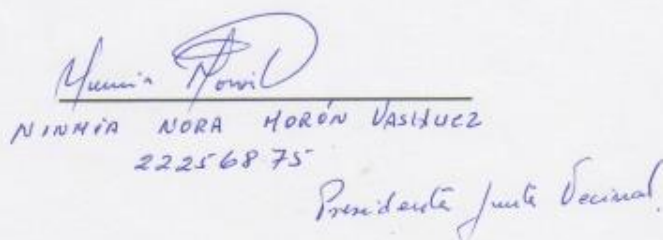 NINMIA NORA MORÓN VASQUEZ
22256875
Presidenta Junta Vecinal